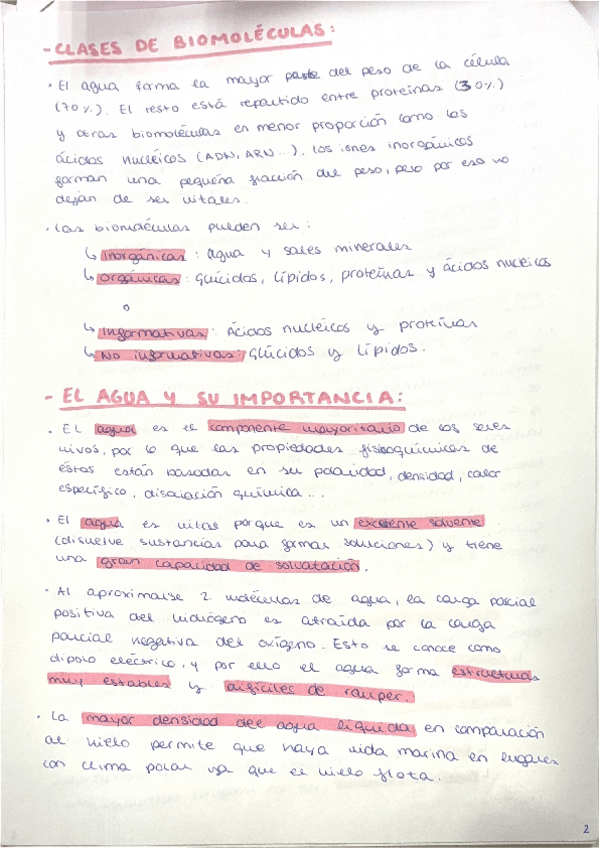 - CLASES DE BIOMOLÉCULAS:
· El agua forma la mayor parte del peso de la célula
(70%). El resto está repartido entre proteínas (30%)
y otras biomoléculas en menor proporción como los
ácidos nucleicos (ADN, ARN...). Los iones inorgánicos
forman una pequeña fracción del peso, pero por eso no
dejan de ser vitales.
· Las biomoléculas pueden ser:
↳ Inorgánicas: agua y sales minerales
↳ Orgánicas: Glúcidos, lípidos, proteínas y ácidos nucleicos
o
↳ Informativas: Ácidos nucleicos y proteínas
↳ No informativas: Glúcidos y Lípidos.
- EL AGUA Y SU IMPORTANCIA:
· El agua es el componente mayoritario de los seres
vivos, por lo que las propiedades fisicoquímicas de
éstos están basadas en su polaridad, densidad, calor
específico, disociación química...
· El agua es vital porque es un excelente solvente
(disuelve sustancias para formar soluciones) y tiene
una gran capacidad de solvatación.
· Al aproximarse 2 moléculas de agua, la carga parcial
positiva del hidrógeno es atraída por la carga
parcial negativa del oxígeno. Esto se conoce como
dipolo eléctrico, y por ello el agua forma estructuras
muy estables y difíciles de romper.
· La mayor densidad del agua líquida en comparación
al hielo permite que haya vida marina en lugares
con clima polar ya que el hielo flota.
2